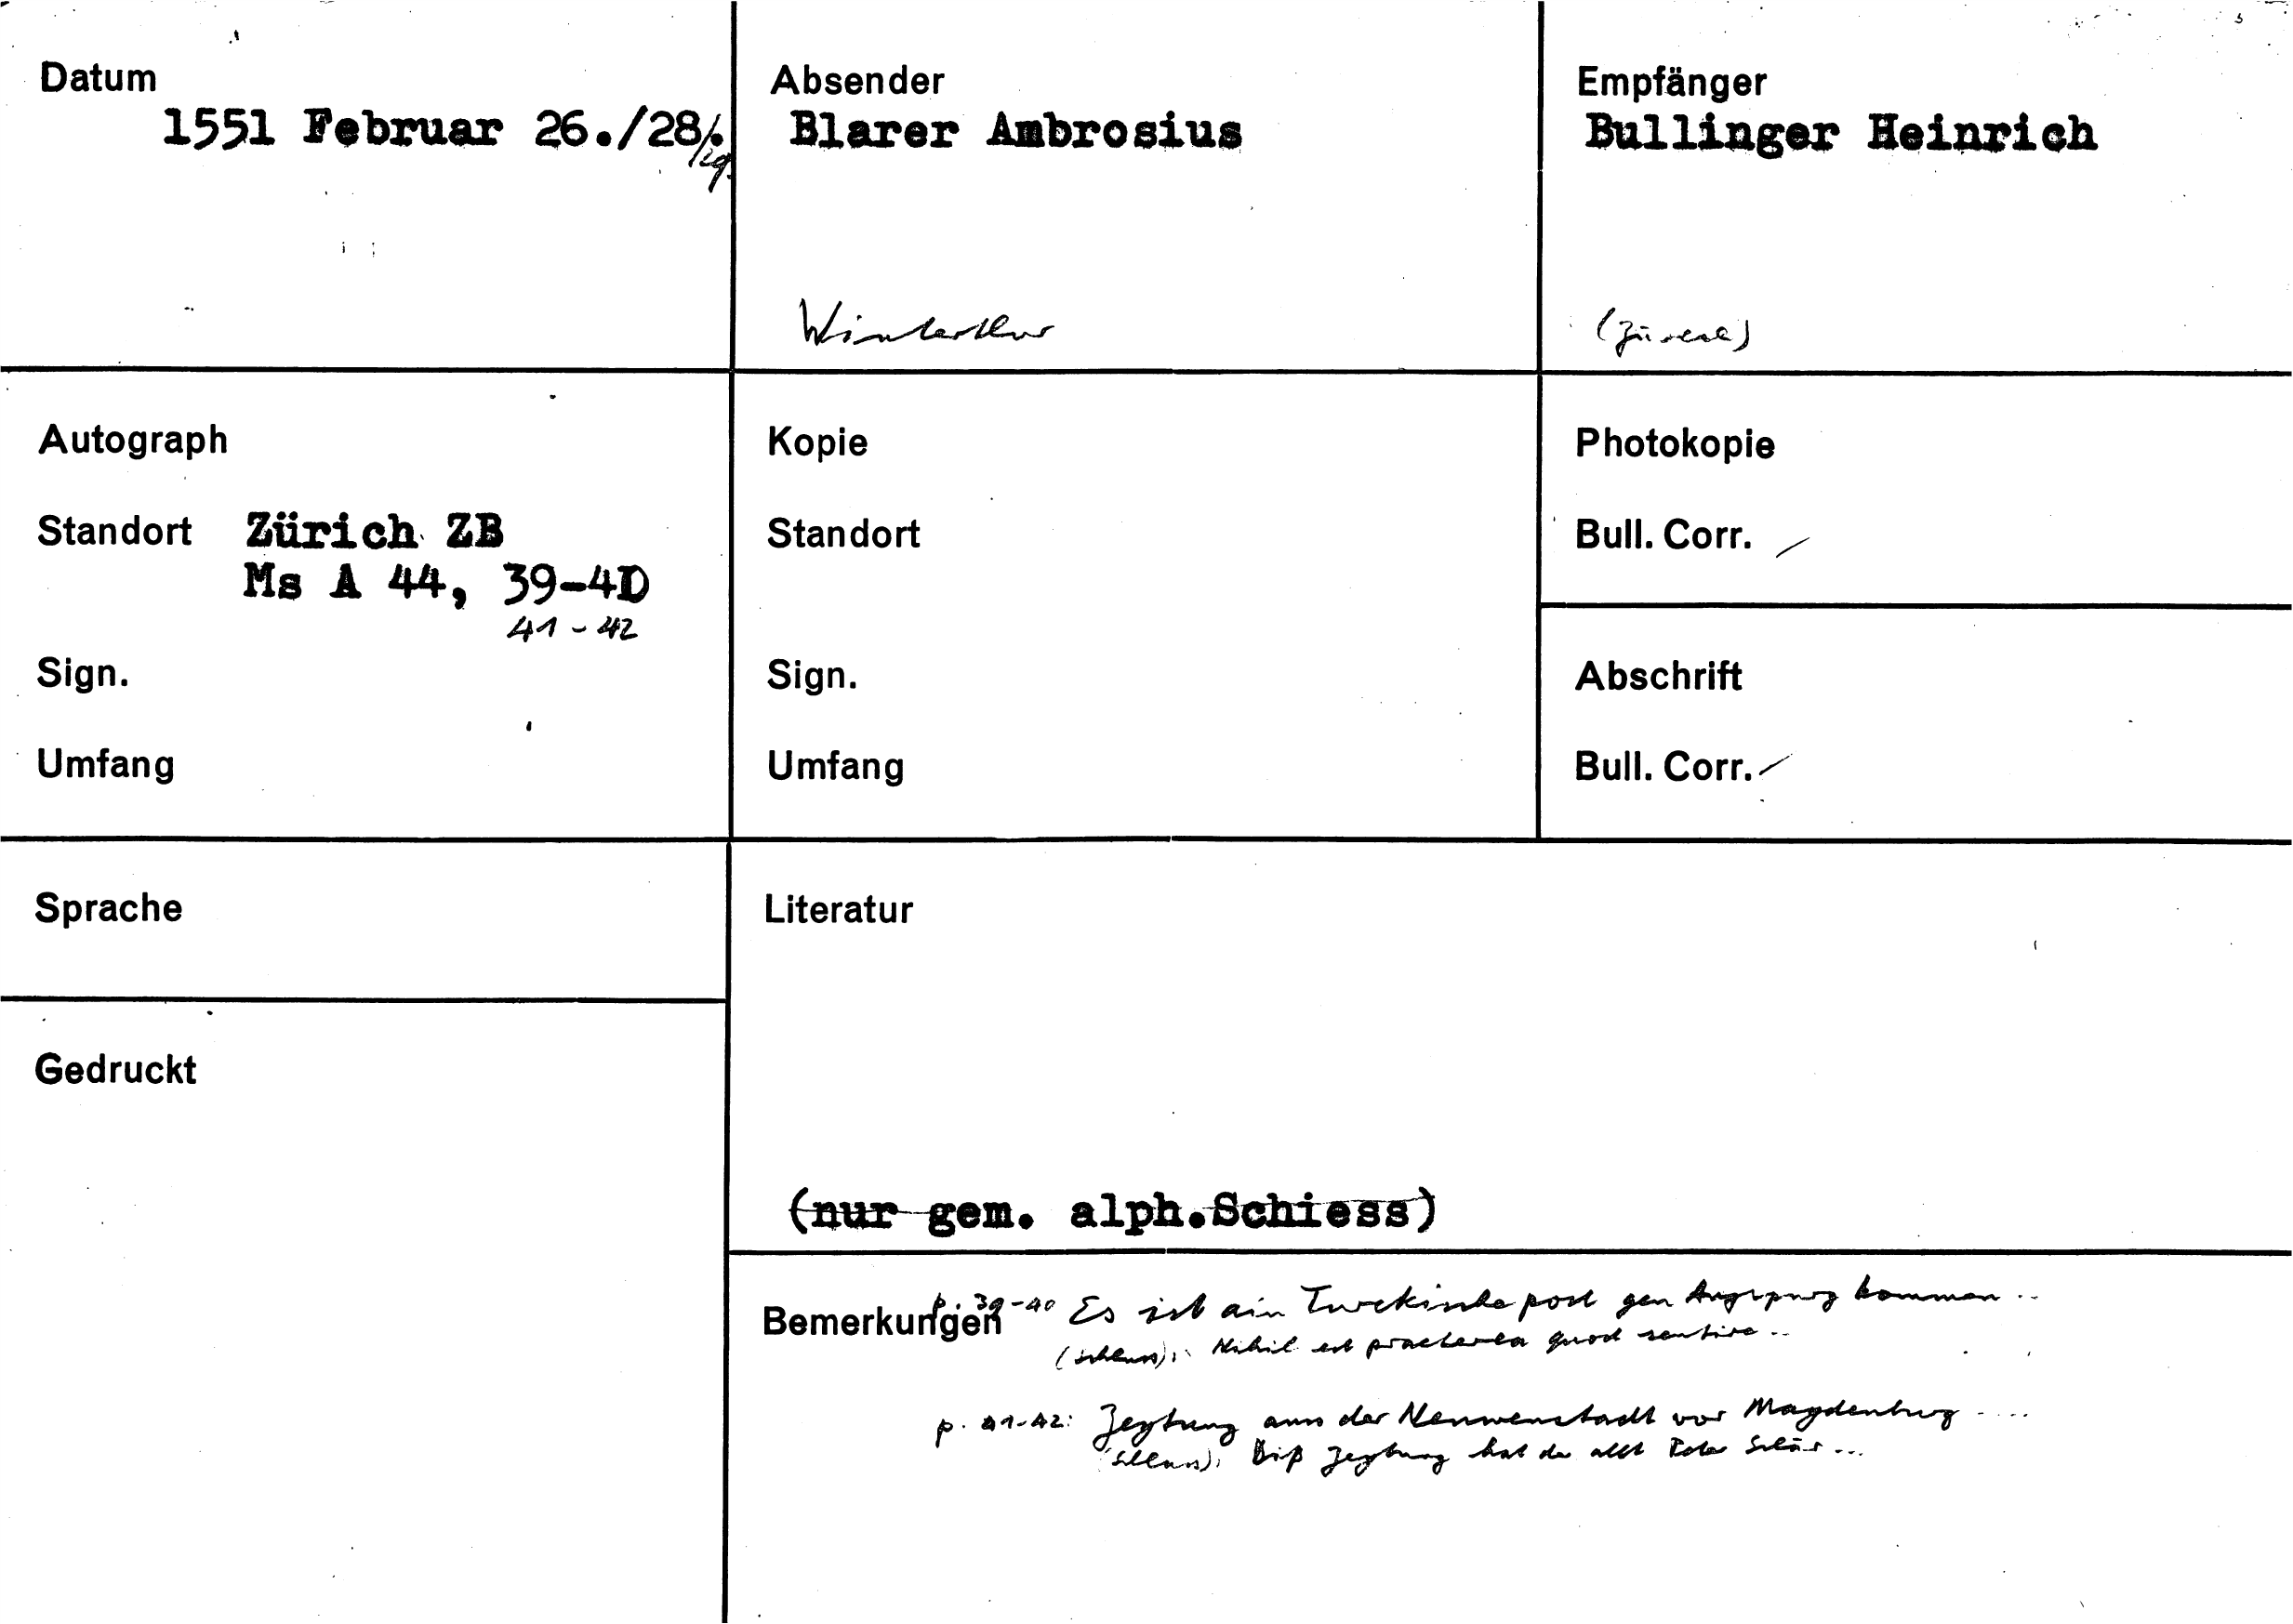 Datum
1551 Februar 26./28./29.
Absender
Blarer Ambrosius
Winterthur
Empfänger
Bullinger Heinrich
(Zürich)
Autograph
Standort Zürich ZB
Ms A 44, 39-40
41-42
Sign.
Umfang
Kopie
Standort
Sign.
Umfang
Photokopie
Bull. Corr.
Abschrift
Bull. Corr.
Sprache
Gedruckt
Literatur
(nur gem. alph.Schiess)
Bemerkungen p. 39-40 Es ist ain Turckische post gen Augspurg kommen ..
(Schluss): Nihil est praeterea quod ..
p. 41-42: Zeytung auss der Neuwenstadt vor Magdenburg ....
(Schluss): Diß Zeytung hat der allt ...